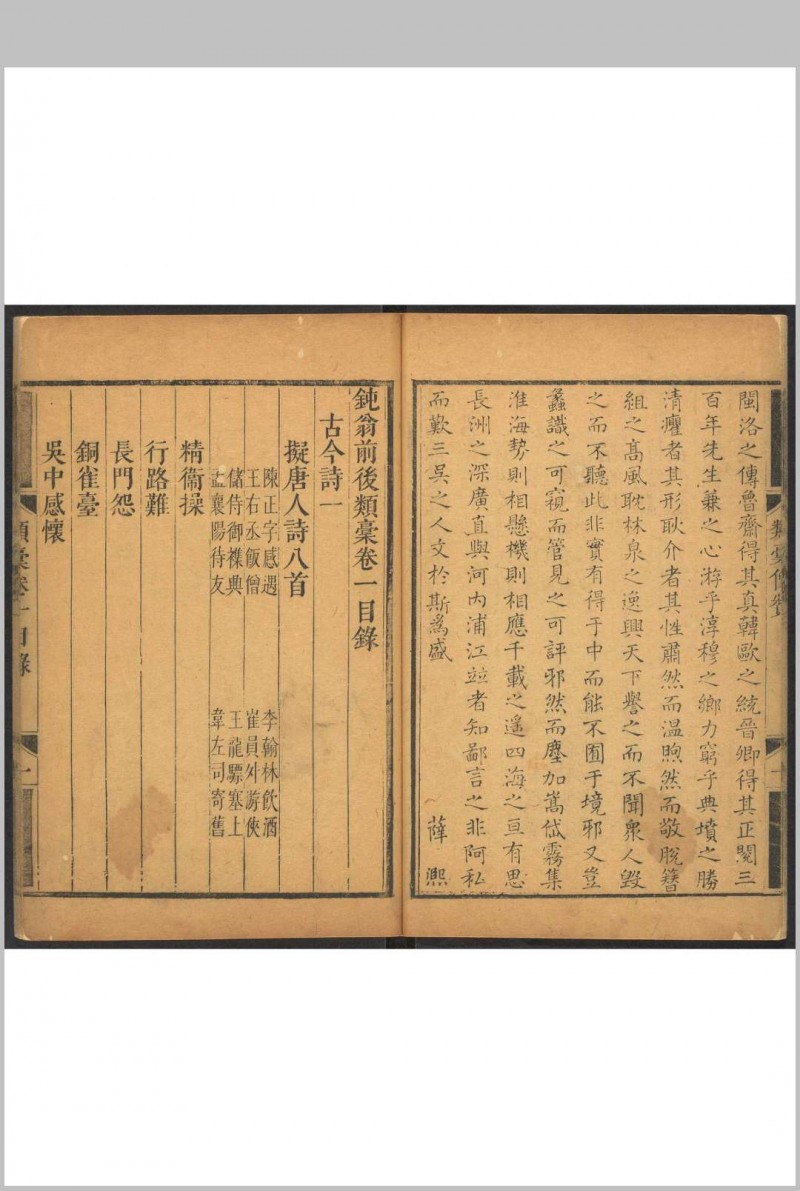 閩洛之傳魯齋得其真韓歐之統晉卿得其正閱三
百年先生兼之心游乎淳穆之鄉力窮乎典墳之勝
清癯者其形耿介者其性肅然而温煦然而敬脫簪
組之高風耽林泉之逸興天下譽之而不聞衆人毀
之而不聽此非實有得于中而能不囿于境邪又豈
蠡識之可窺而管見之可評邪然而塵加嵩岱霧集
淮海勢則相懸機則相應千載之遥四海之亘有思
長洲之深廣直與河内浦江竝者知鄙言之非阿私
而歎三吳之人文於斯爲盛
薛熙
鈍翁前後類稾卷一目錄
古今詩一
擬唐人詩八首
陳正字感遇 李翰林飲酒
王右丞飯僧 崔員外游俠
儲侍御襍典 王龍驃塞上
孟襄陽待友 韋左司寄舊
精衞操
行路難
長門怨
銅雀臺
吳中感懷
類稾卷一目錄
一